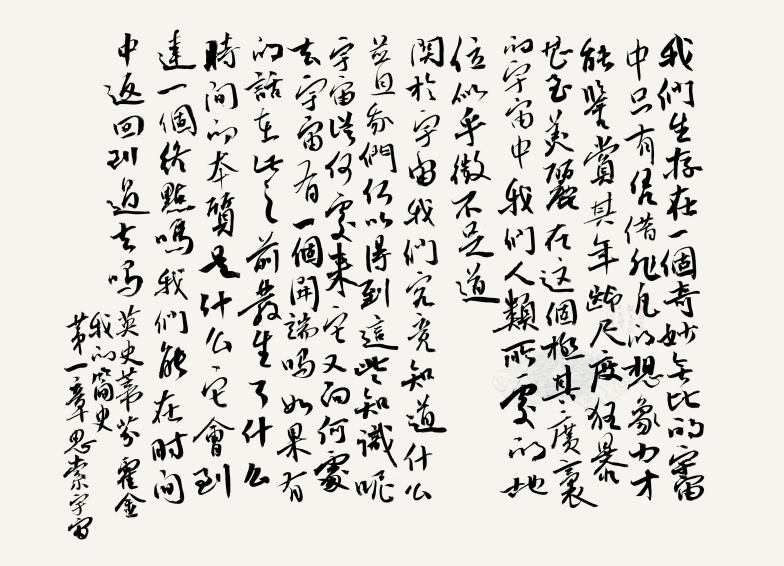 我們生存在一個奇妙無比的宇宙
中只有凭借非凡的想象力才
能鑒賞其年齡尺度狂暴
甚至美麗在这個極其廣袤
的宇宙中我们人類所處的地
位似乎微不足道
関於宇宙我们究竟知道什么
並且我們何以得到這些知識呢
宇宙從何處來它又向何處
去宇宙有一個開端嗎如果有
的話在此之前發生了什么
時间的本質是什么它會到
達一個終點嗎我们能在时间
中返回到過去嗎
英史蒂芬霍金
我的簡史
第一章思索宇宙